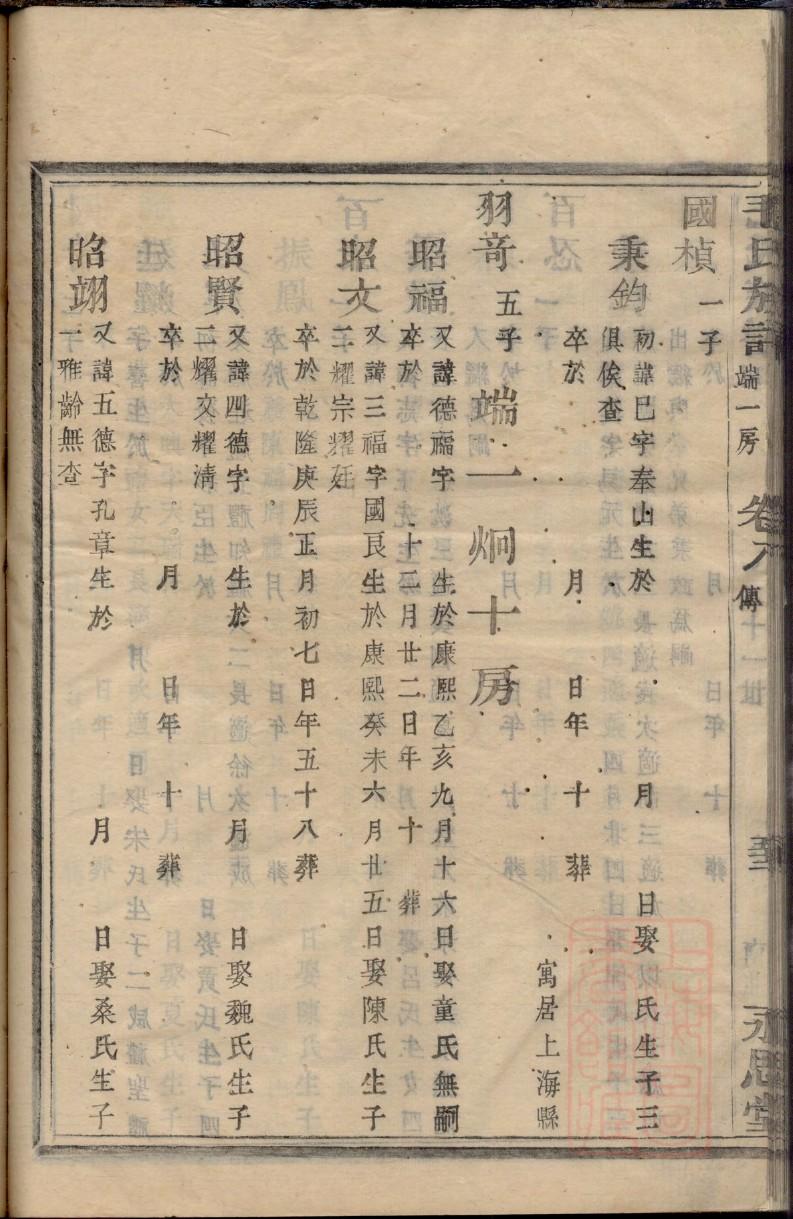 毛氏族譜 端一房 卷八 傳 永思堂
國楨 一子
秉鈞 初諱巳字奉山生於 月 日娶以氏生子三
俱俟查
卒於 月 日年 十 葬
羽奇 五子 端一炯十房 寓居上海縣
昭福 又諱德福字 生於康熙乙亥九月十六日娶童氏無嗣
卒於 十二月廿二日年 十 葬
昭文 又諱三福字國良生於康熙癸未六月廿五日娶陳氏生子
二耀宗耀廷
卒於乾隆庚辰正月初七日年五十八葬
昭賢 又諱四德字 生於 月 日娶魏氏生子
二耀文耀清
卒於 月 日年 十 葬
昭翊 又諱五德字孔章生於 月 日娶桑氏生子
一雅齡無查